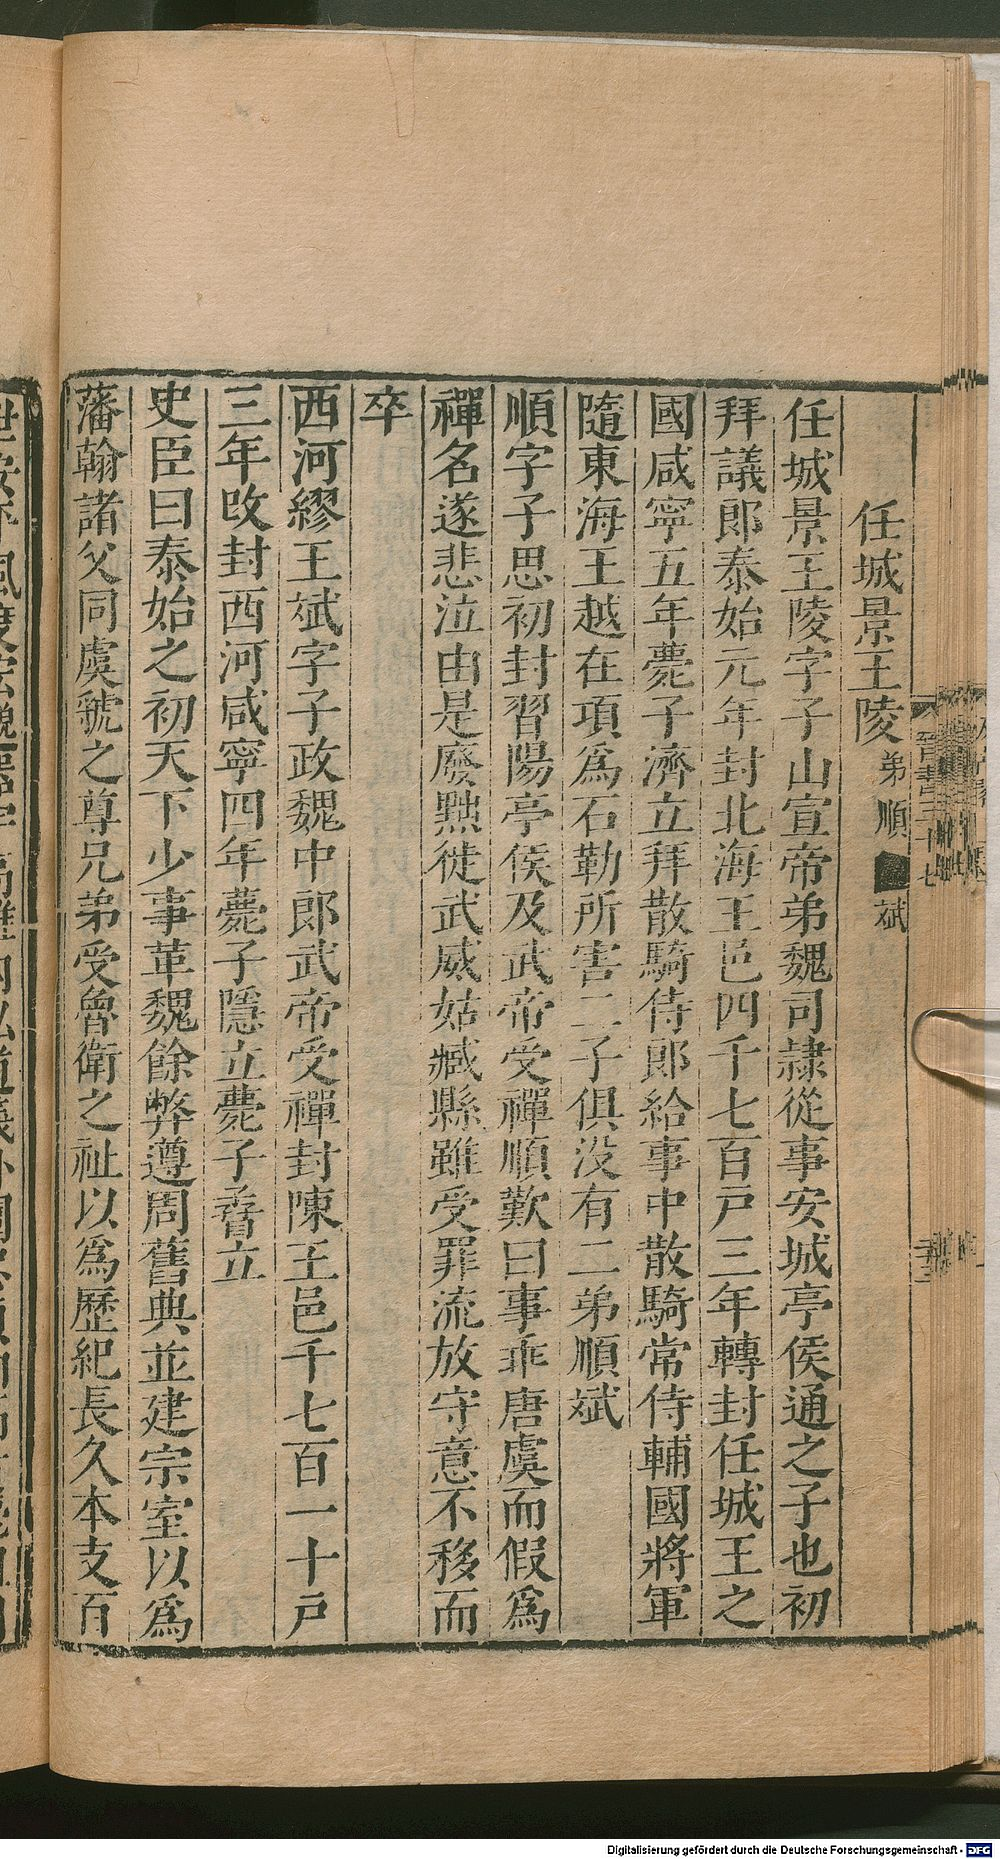 任城景王陵 弟順 斌
任城景王陵字子山宣帝弟魏司隸從事安城亭侯通之子也初
拜議郎泰始元年封北海王邑四千七百戶三年轉封任城王之
國咸寧五年薨子濟立拜散騎侍郎給事中散騎常侍輔國將軍
隨東海王越在項爲石勒所害二子俱没有二弟順斌
順字子思初封習陽亭侯及武帝受禪順歎曰事乖唐虞而假爲
禪名遂悲泣由是廢黜徙武威姑臧縣雖受罪流放守意不移而
卒
西河繆王斌字子政魏中郎武帝受禪封陳王邑千七百一十戶
三年改封西河咸寧四年薨子隱立薨子𦡱立
史臣曰泰始之初天下少事革魏餘弊遵周舊典並建宗室以爲
藩翰諸父同虞虢之尊兄弟受魯衛之祉以爲歷紀長久本支百
晉書三十七
Digitalisierung gefördert durch die Deutsche Forschungsgemeinschaft - DFG